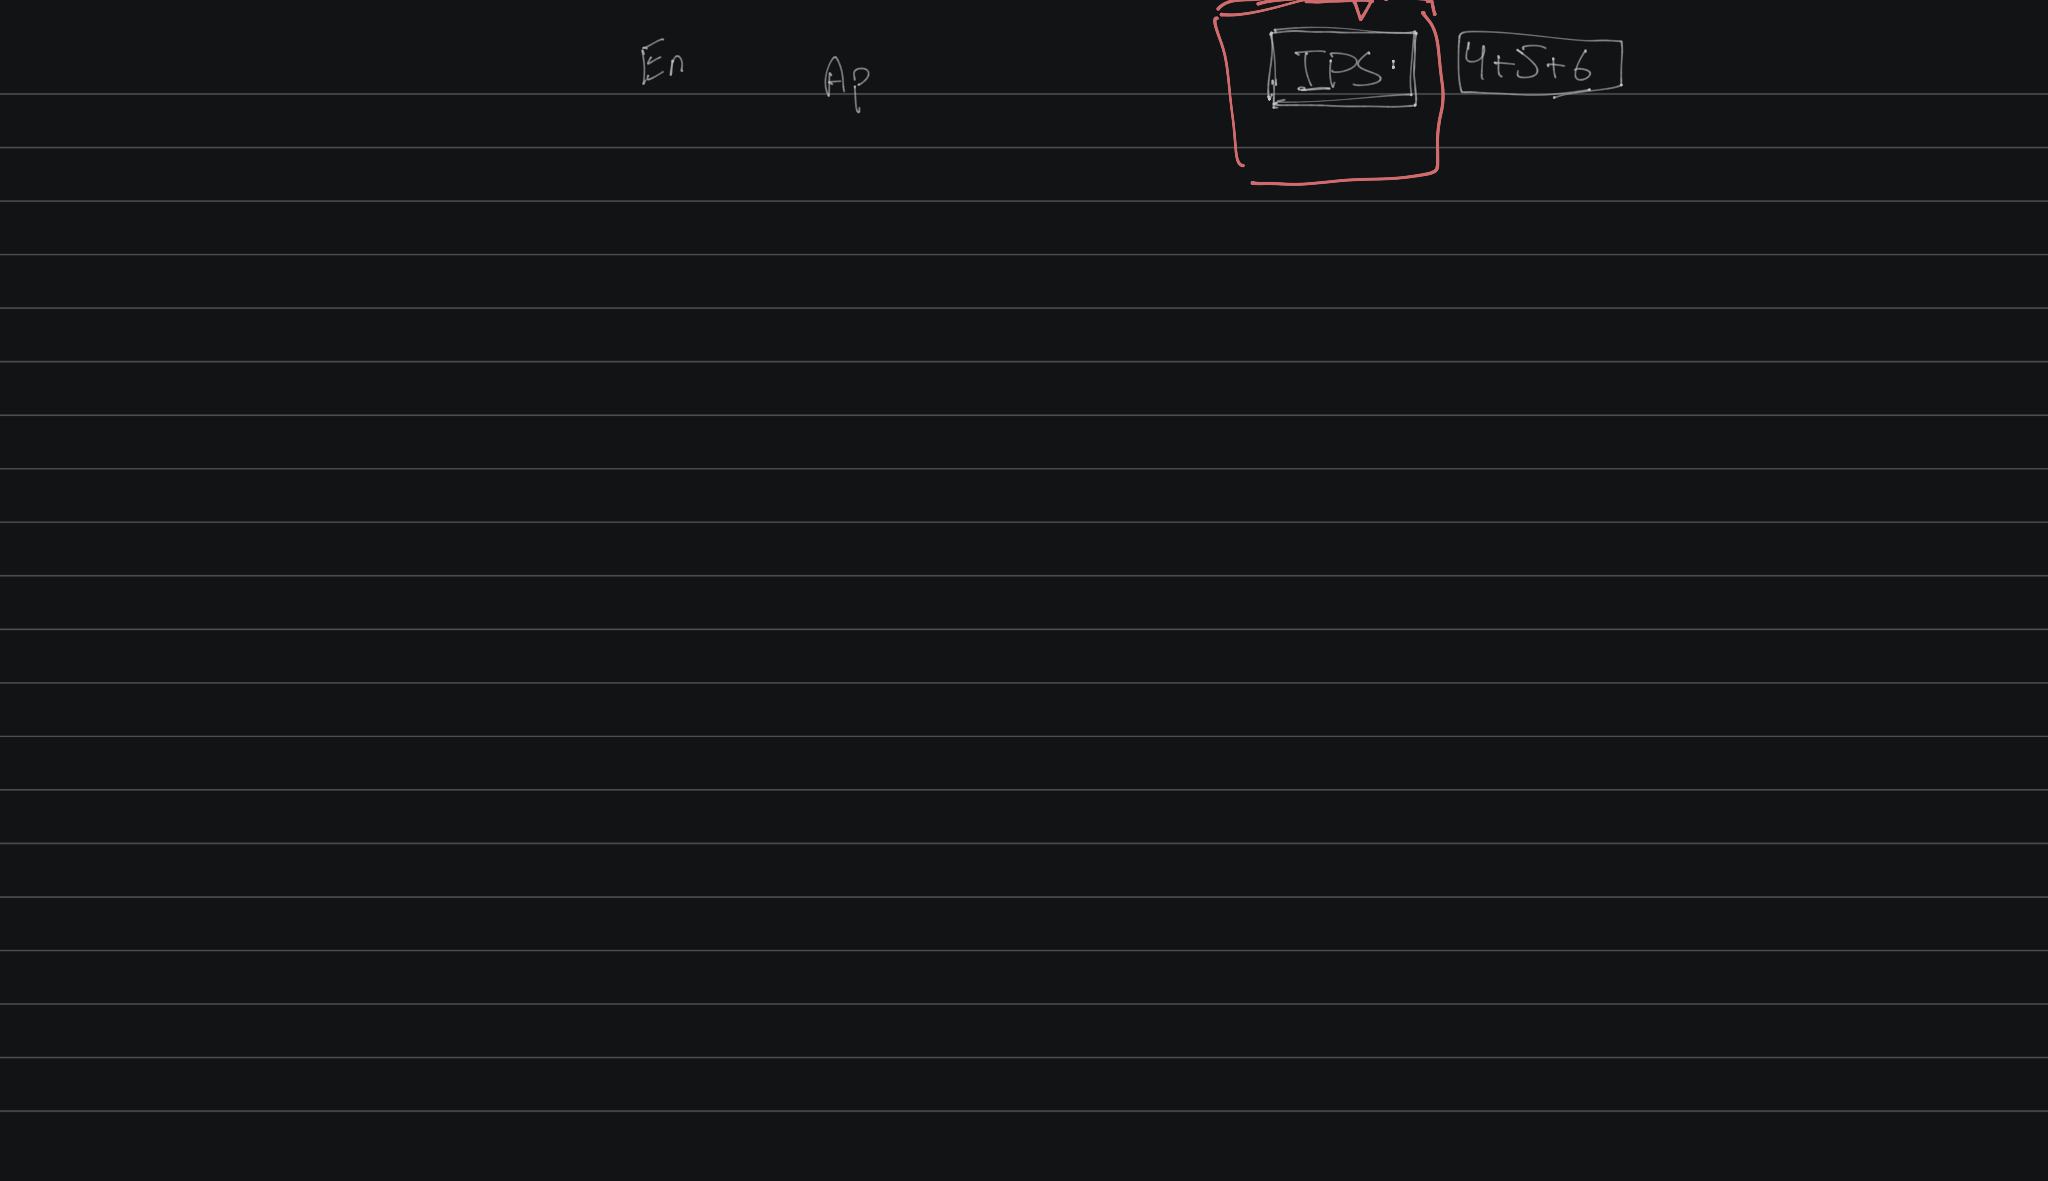 En Ap IPS: 4+5+6